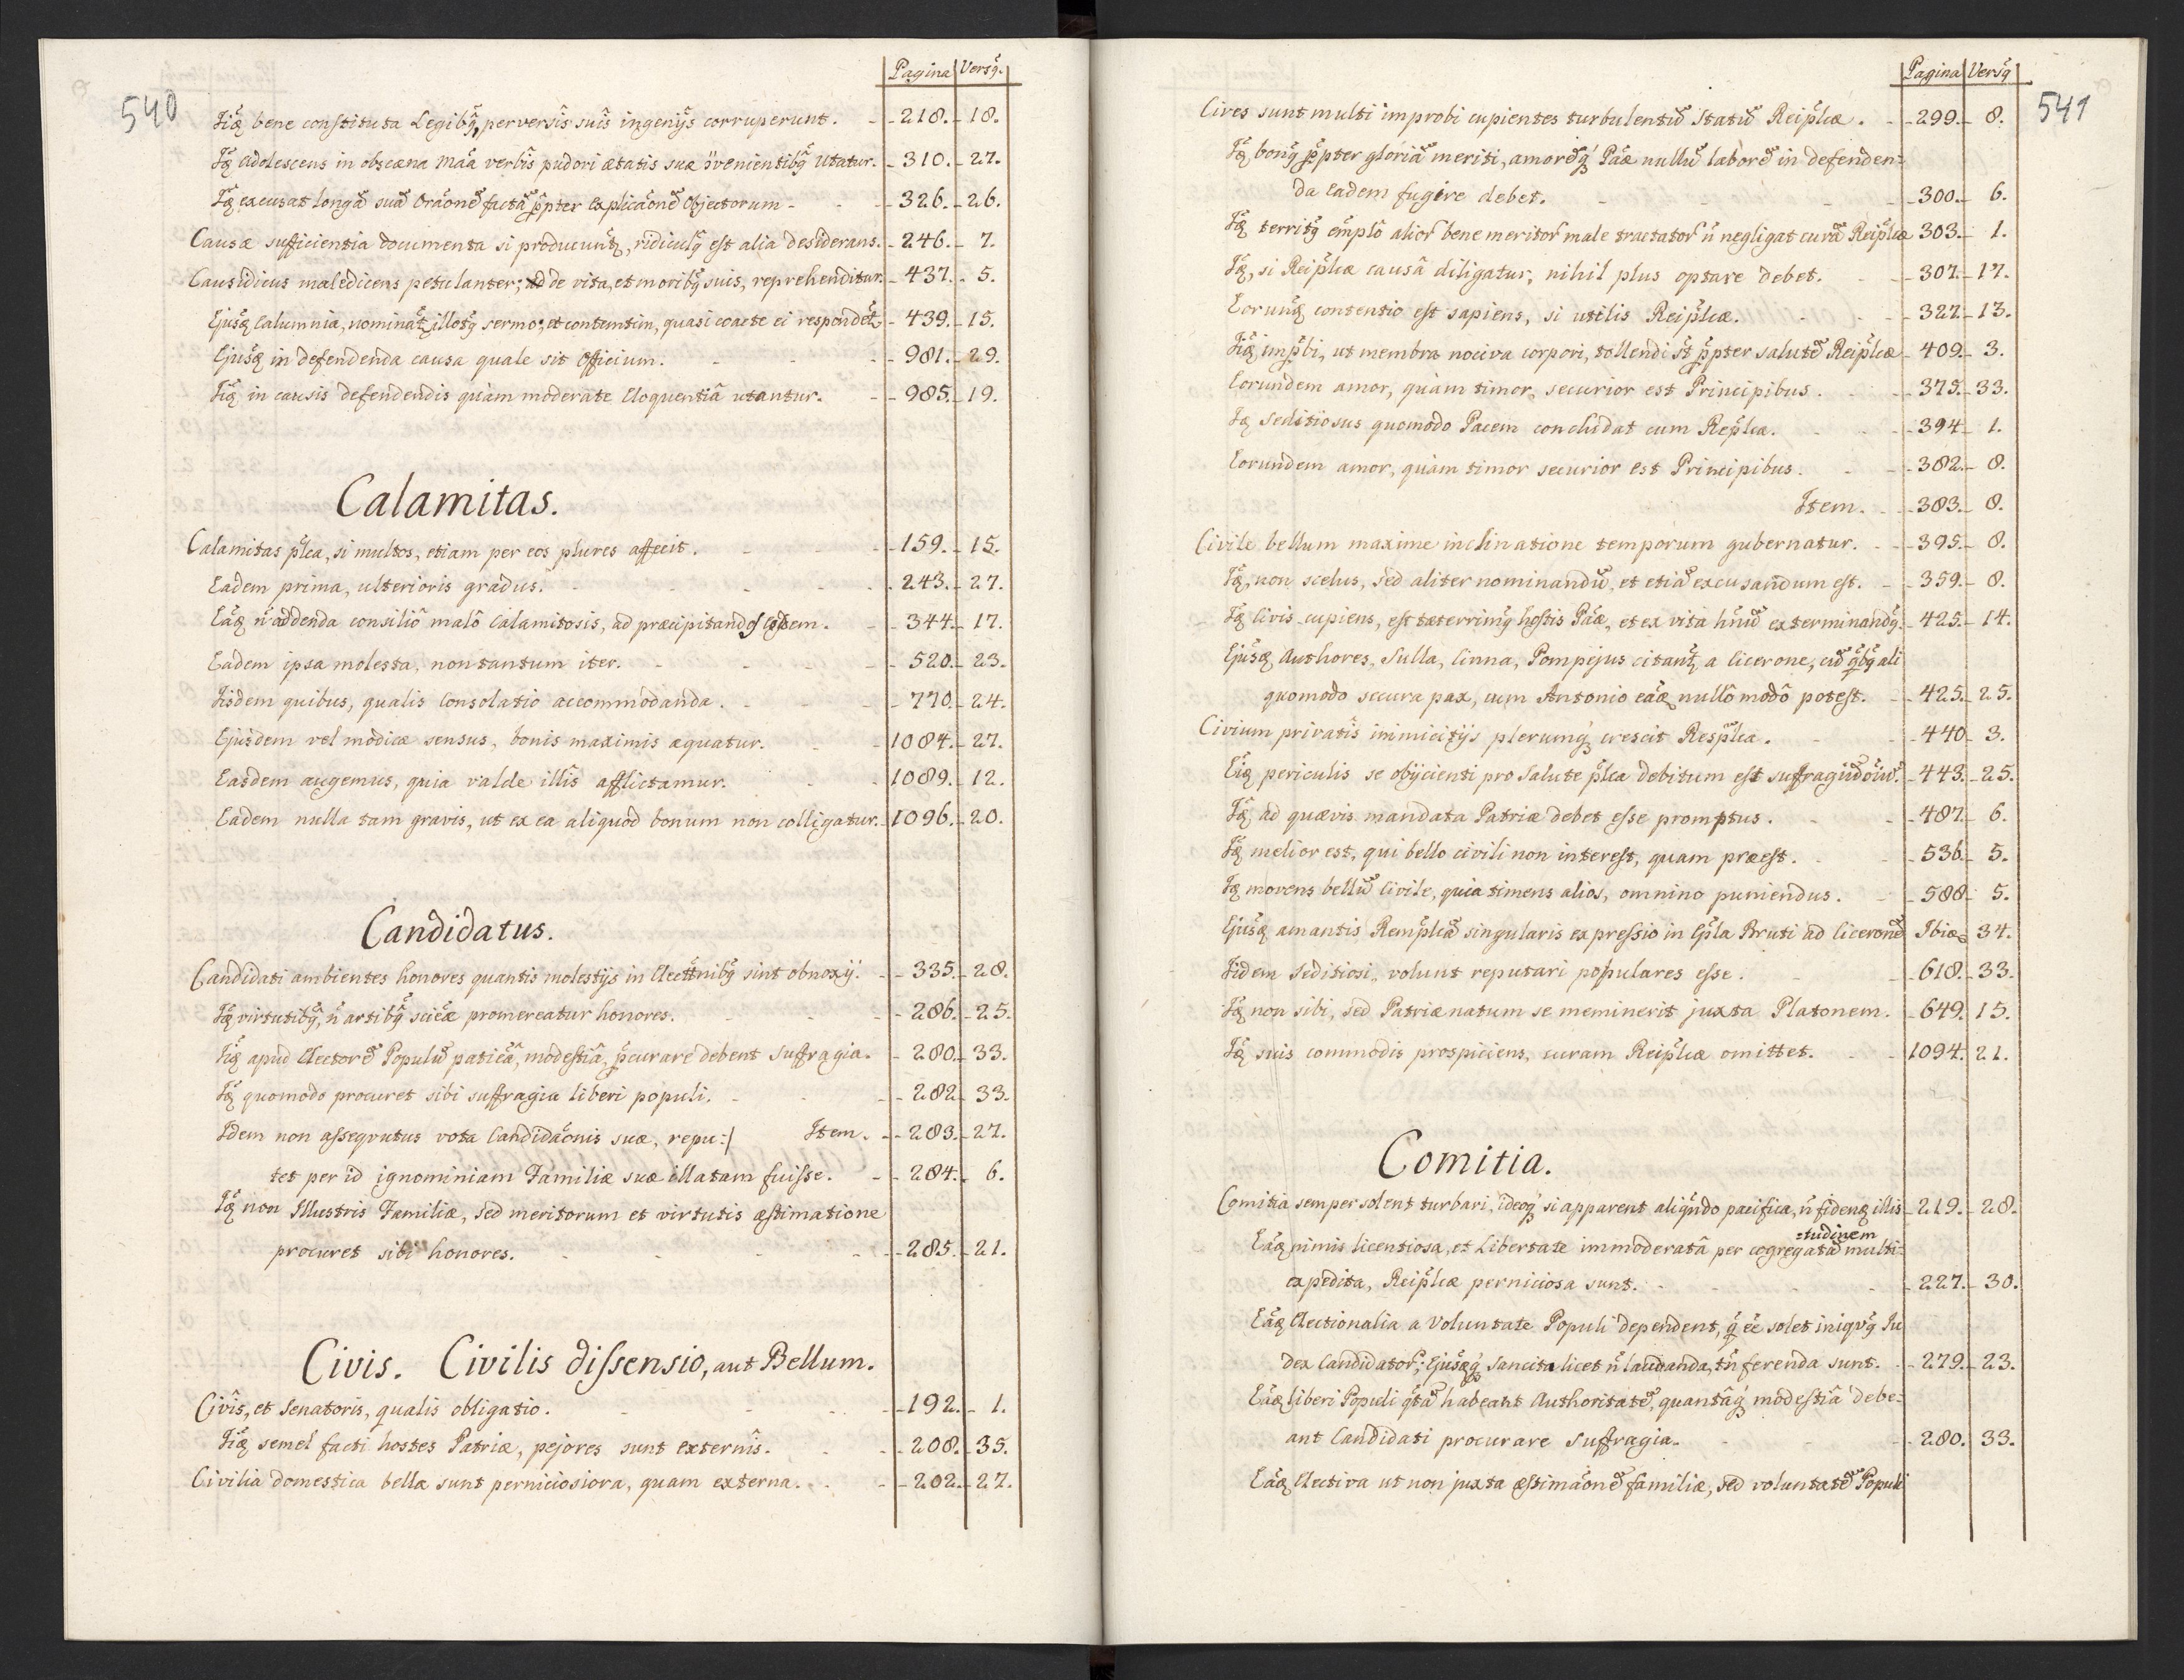 540
Pagina Versq̃.
Iiq̃ bene constituta Legibq̃, perversis suis ingenijs corruperunt. - 218. - 18.
Iq̃ adolescens in obscæna mãa verbis pudori ætatis suæ õvenientibq̃ utatur. - 310. - 27.
Iq̃ excusat longã suã Orãonẽ factã p̃pter explicãonẽ Objectorum - 326. - 26.
Causæ sufficientia documenta si producunt̃, ridiculq̃ est alia desiderans. - 246. - 7.
Causidicus maledicens petulanter; de vita, et moribq̃ suis, reprehenditur. - 437. - 5.
Ejusq̃ Calumnia, nominat̃ illotq̃ sermo; et contemtim, quasi coacte ei respondet̃ - 439. - 15.
Ejusq̃ in defendenda causa quale sit Officium. - 981. - 29.
Iiq̃ in causis defendendis quàm moderate Eloquentiâ utantur. - 985. - 19.
Calamitas.
Calamitas p̃lca, si multos, etiam per eos plures affecit. - 159. - 15.
Eadem prima, ulterioris gradus. - 243. - 27.
Eãq̃ ñ addenda consiliô malô Calamitosis, ad præcipitandos eosdem. - 344. - 17.
Eadem ipsa molesta, non tantum iter. - 520. - 23.
Iisdem quibus, qualis Consolatio accommodanda. - 770. - 24.
Ejusdem vel modicæ sensus, bonis maximis æquatur. - 1084. - 27.
Easdem augemus, quia valde illîs afflictamur. - 1089. - 12.
Eadem nulla tam gravis, ut ex ea aliquod bonum non colligatur. - 1096. - 20.
Candidatus.
Candidati ambientes honores quantis molestijs in Elect̃nibq̃ sint obnoxij. - 335. - 28.
Iq̃ virtutibq̃, ñ artibq̃ sciẽæ promereatur honores. - 286. - 25.
Iiq̃ apud Electorẽ Populũ patiẽâ, modestiâ, p̃curare debent suffragia. - 280. - 33.
Iq̃ quomodo procuret sibi suffragia liberi populi. - 282. - 33.
Idem non assequutus vota Candidãonis suæ, repu:/ Item. - 283. - 27.
tet per id ignominiam Familiæ suæ illatam fuisse. - 284. - 6.
Iq̃ non Illustris Familiæ, sed meritorum et virtutis æstimatione
procuret sibi honores. - 285. - 21.
Civis. Civilis dissensio, aut Bellum.
Civis, et Senatoris, qualis obligatio. - 192. - 1.
Iiq̃ semel facti hostes Patriæ, pejores sunt externîs. - 208. - 35.
Civilia domestica bella sunt perniciosiora, quam externa. - 202. - 27.
541
Pagina Versq̃
Cives sunt multi improbi cupientes turbulentũ Statũ Reip̃lcæ. - 299. - 8.
Iq̃ bonq̃ p̃pter gloriã meriti, amorẽq̃ Pãæ nullũ laborẽ in defenden=
da eadem fugere debet. - 300. - 6.
Iq̃ territq̃ em̃plô alior̃ bene meritor̃ male tractator̃ ñ negligat curã Reip̃lcæ 303. - 1.
Iq̃, si Reip̃lcæ causâ diligatur, nihil plus optare debet. - 307. - 17.
Eorunq̃ contentio est sapiens, si utilis Reip̃lcæ. - 327. - 13.
Iiq̃ imp̃bi, ut membra nociva corpori, tollendi s̃t p̃pter salutẽ Reip̃lcæ - 409. - 3.
Eorundem amor, quàm timor, securior est Principibus. - 375. - 33.
Iq̃ seditiosus quomodo Pacem concludat cum Rep̃lca. - 394 - 1.
Eorundem amor, quàm timor securior est Principibus. - 382. - 8.
Item. - 383. - 8.
Civile bellum maxime inclinatione temporum gubernatur. - 395. - 8.
Iq̃, non scelus, sed aliter nominandũ, et etiã excusandum est. - 359. - 8.
Iq̃ Civis cupiens, est tæterrimq̃ hostis Pãæ, et ex vita hñũ exterminandq̃. - 425. - 14.
Ejusq̃ Authores, Sulla, Cinna, Pompejus citant̃, a Cicerone, cũ q̃bq̃ ali
quomodo secura pax, cum Antonio eãq̃ nullô modô potest. - 425. - 25.
Civium privatîs inimicitijs plerumq̃ crescit Resp̃lca. - 440 - 3.
Eiq̃ periculis se objicienti pro Salute p̃lca debitum est suffragiũ oĩũ. - 443. - 25.
Iq̃, ad quævis mandata Patriæ debet esse promptus. - 487. - 6.
Iq̃ melior est, qui bello civili non interest, quam præest. - 536. - 5.
Iq̃ movens bellũ Civile, quia timens alios, omnino puniendus. - 588 - 5.
Ejusq̃ amantis Remp̃lcã singularis expressio in Ep̃la Bruti ad Ciceronẽ Ibiq̃ 34.
Iidem seditiosi, volunt reputari populares esse. - 618. - 33.
Iq̃ non sibi, sed Patriæ natum se meminerit juxta Platonem. - 649. 15.
Iq̃ suis commodis prospiciens, curam Reip̃lcæ omittet. - 1094. 21.
Comitia.
Comitia semper solent turbari, ideoq̃ si apparent aliq̃ndo pacifica, ñ fidenq̃ illis - 219. - 28.
=tudinem
Eãq̃ nimis licentiosa, et Libertate immoderatâ per cogregatã multi=
expedita, Reip̃lcæ perniciosa sunt. - 227. - 30.
Eãq̃ Electionalia a Voluntate Populi dependent, q̃ eẽ solet iniqvq̃ Iu
dex Candidator̃; Ejusq̃q̃ sancita licet ñ laudanda, tñ ferenda sunt. - 279. - 23.
Eãq̃ liberi Populi q̃tã habeant Authoritatẽ, quantâq̃ modestiâ debe=
ant Candidati procurare Suffragia. - 280. 33.
Eãq̃ Electiva ut non juxta æstimãonẽ familiæ, sed voluntatẽ Populi